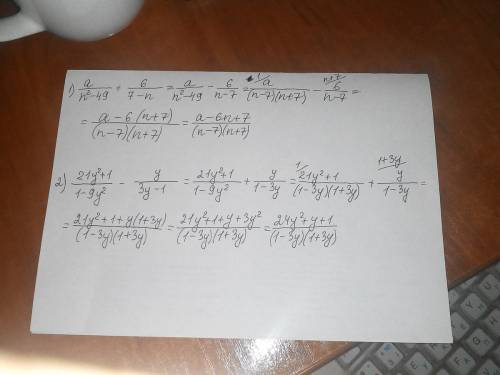 1) a/(n²-49) + 6/(7-n) = a/(n²-49) - 6/(n-7) = ¹⁄a/((n-7)(n+7)) - ⁿ⁺⁷⁄6/(n-7) =
= (a-6(n+7))/((n-7)(n+7)) = (a-6n+7)/((n-7)(n+7))
2) (21y²+1)/(1-9y²) - y/(3y-1) = (21y²+1)/(1-9y²) + y/(1-3y) = ¹⁄(21y²+1)/((1-3y)(1+3y)) + ¹⁺³ʸ⁄y/(1-3y) =
= (21y²+1+y(1+3y))/((1-3y)(1+3y)) = (21y²+1+y+3y²)/((1-3y)(1+3y)) = (24y²+y+1)/((1-3y)(1+3y))